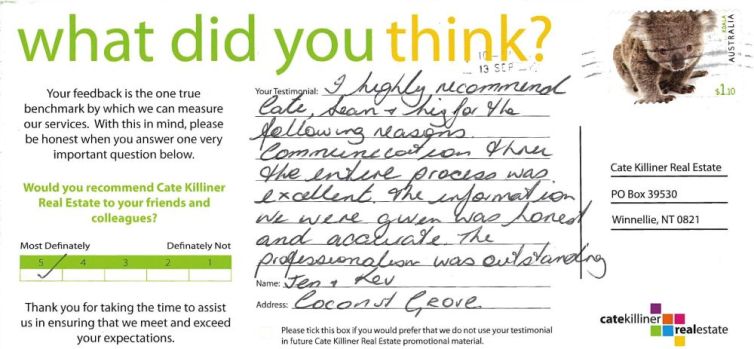 what did you think?
Your feedback is the one true
benchmark by which we can measure
our services. With this in mind, please
be honest when you answer one very
important question below.
Would you recommend Cate Killiner
Real Estate to your friends and
colleagues?
Most Definately Definately Not
5 4 3 2 1
Thank you for taking the time to assist
us in ensuring that we meet and exceed
your expectations.
13 SEP
Your Testimonial: I highly recommend
Cate, Sean + for the
following reasons.
Communication thru
the entire process was
excellent. The information
we were given was honest
and accurate. The
professionalism was outstanding
Name: Jen + Kev
Address: Coconut Grove
Please tick this box if you would prefer that we do not use your testimonial
in future Cate Killiner Real Estate promotional material.
KOALA
AUSTRALIA
$1.10
Cate Killiner Real Estate
PO Box 39530
Winnellie, NT 0821
catekilliner
realestate